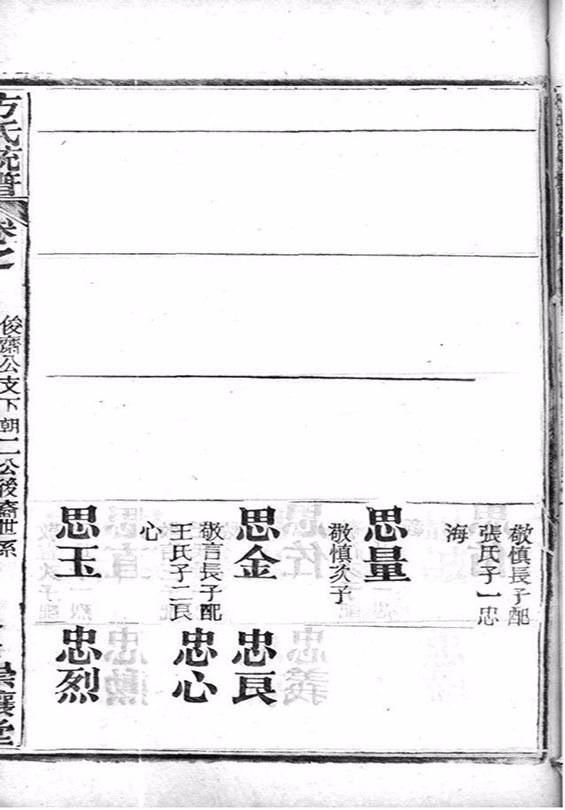 敬慎長子配
張氏子一忠
海
思量
敬慎次子
思金
敬言長子配
王氏子二良
心
思玉
忠良
忠心
忠烈
方氏統譜
卷之
俊齋公支下朝二公後裔世系